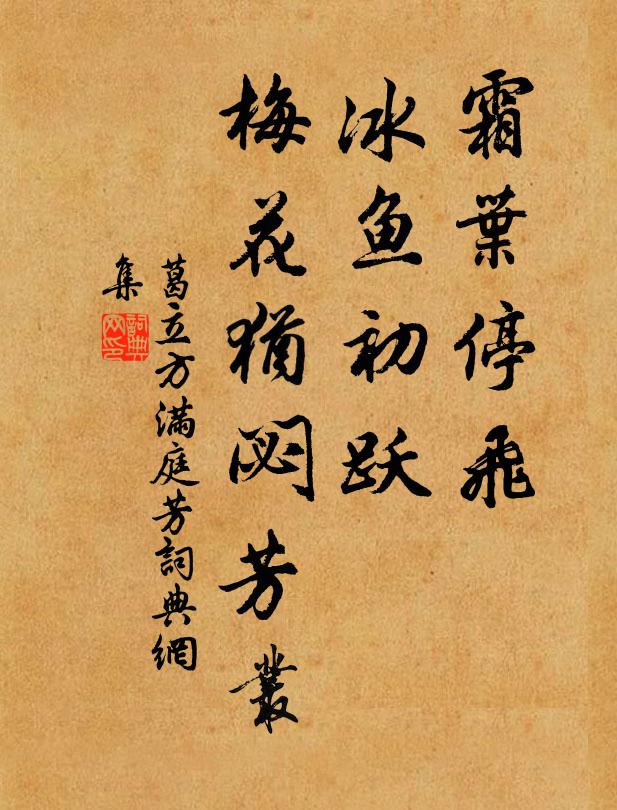 霜葉停飛
冰鱼初跃
梅花猶閟芳叢
葛立方滿庭芳詞典網
集
詞典网印